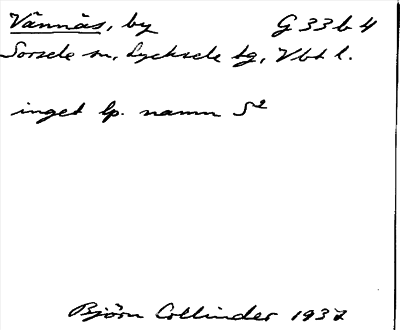 Vännäs, by G 33 b 4
Sorsele sn, Lycksele tg, Vbt l.
inget lp. namn S²
Björn Collinder 1937